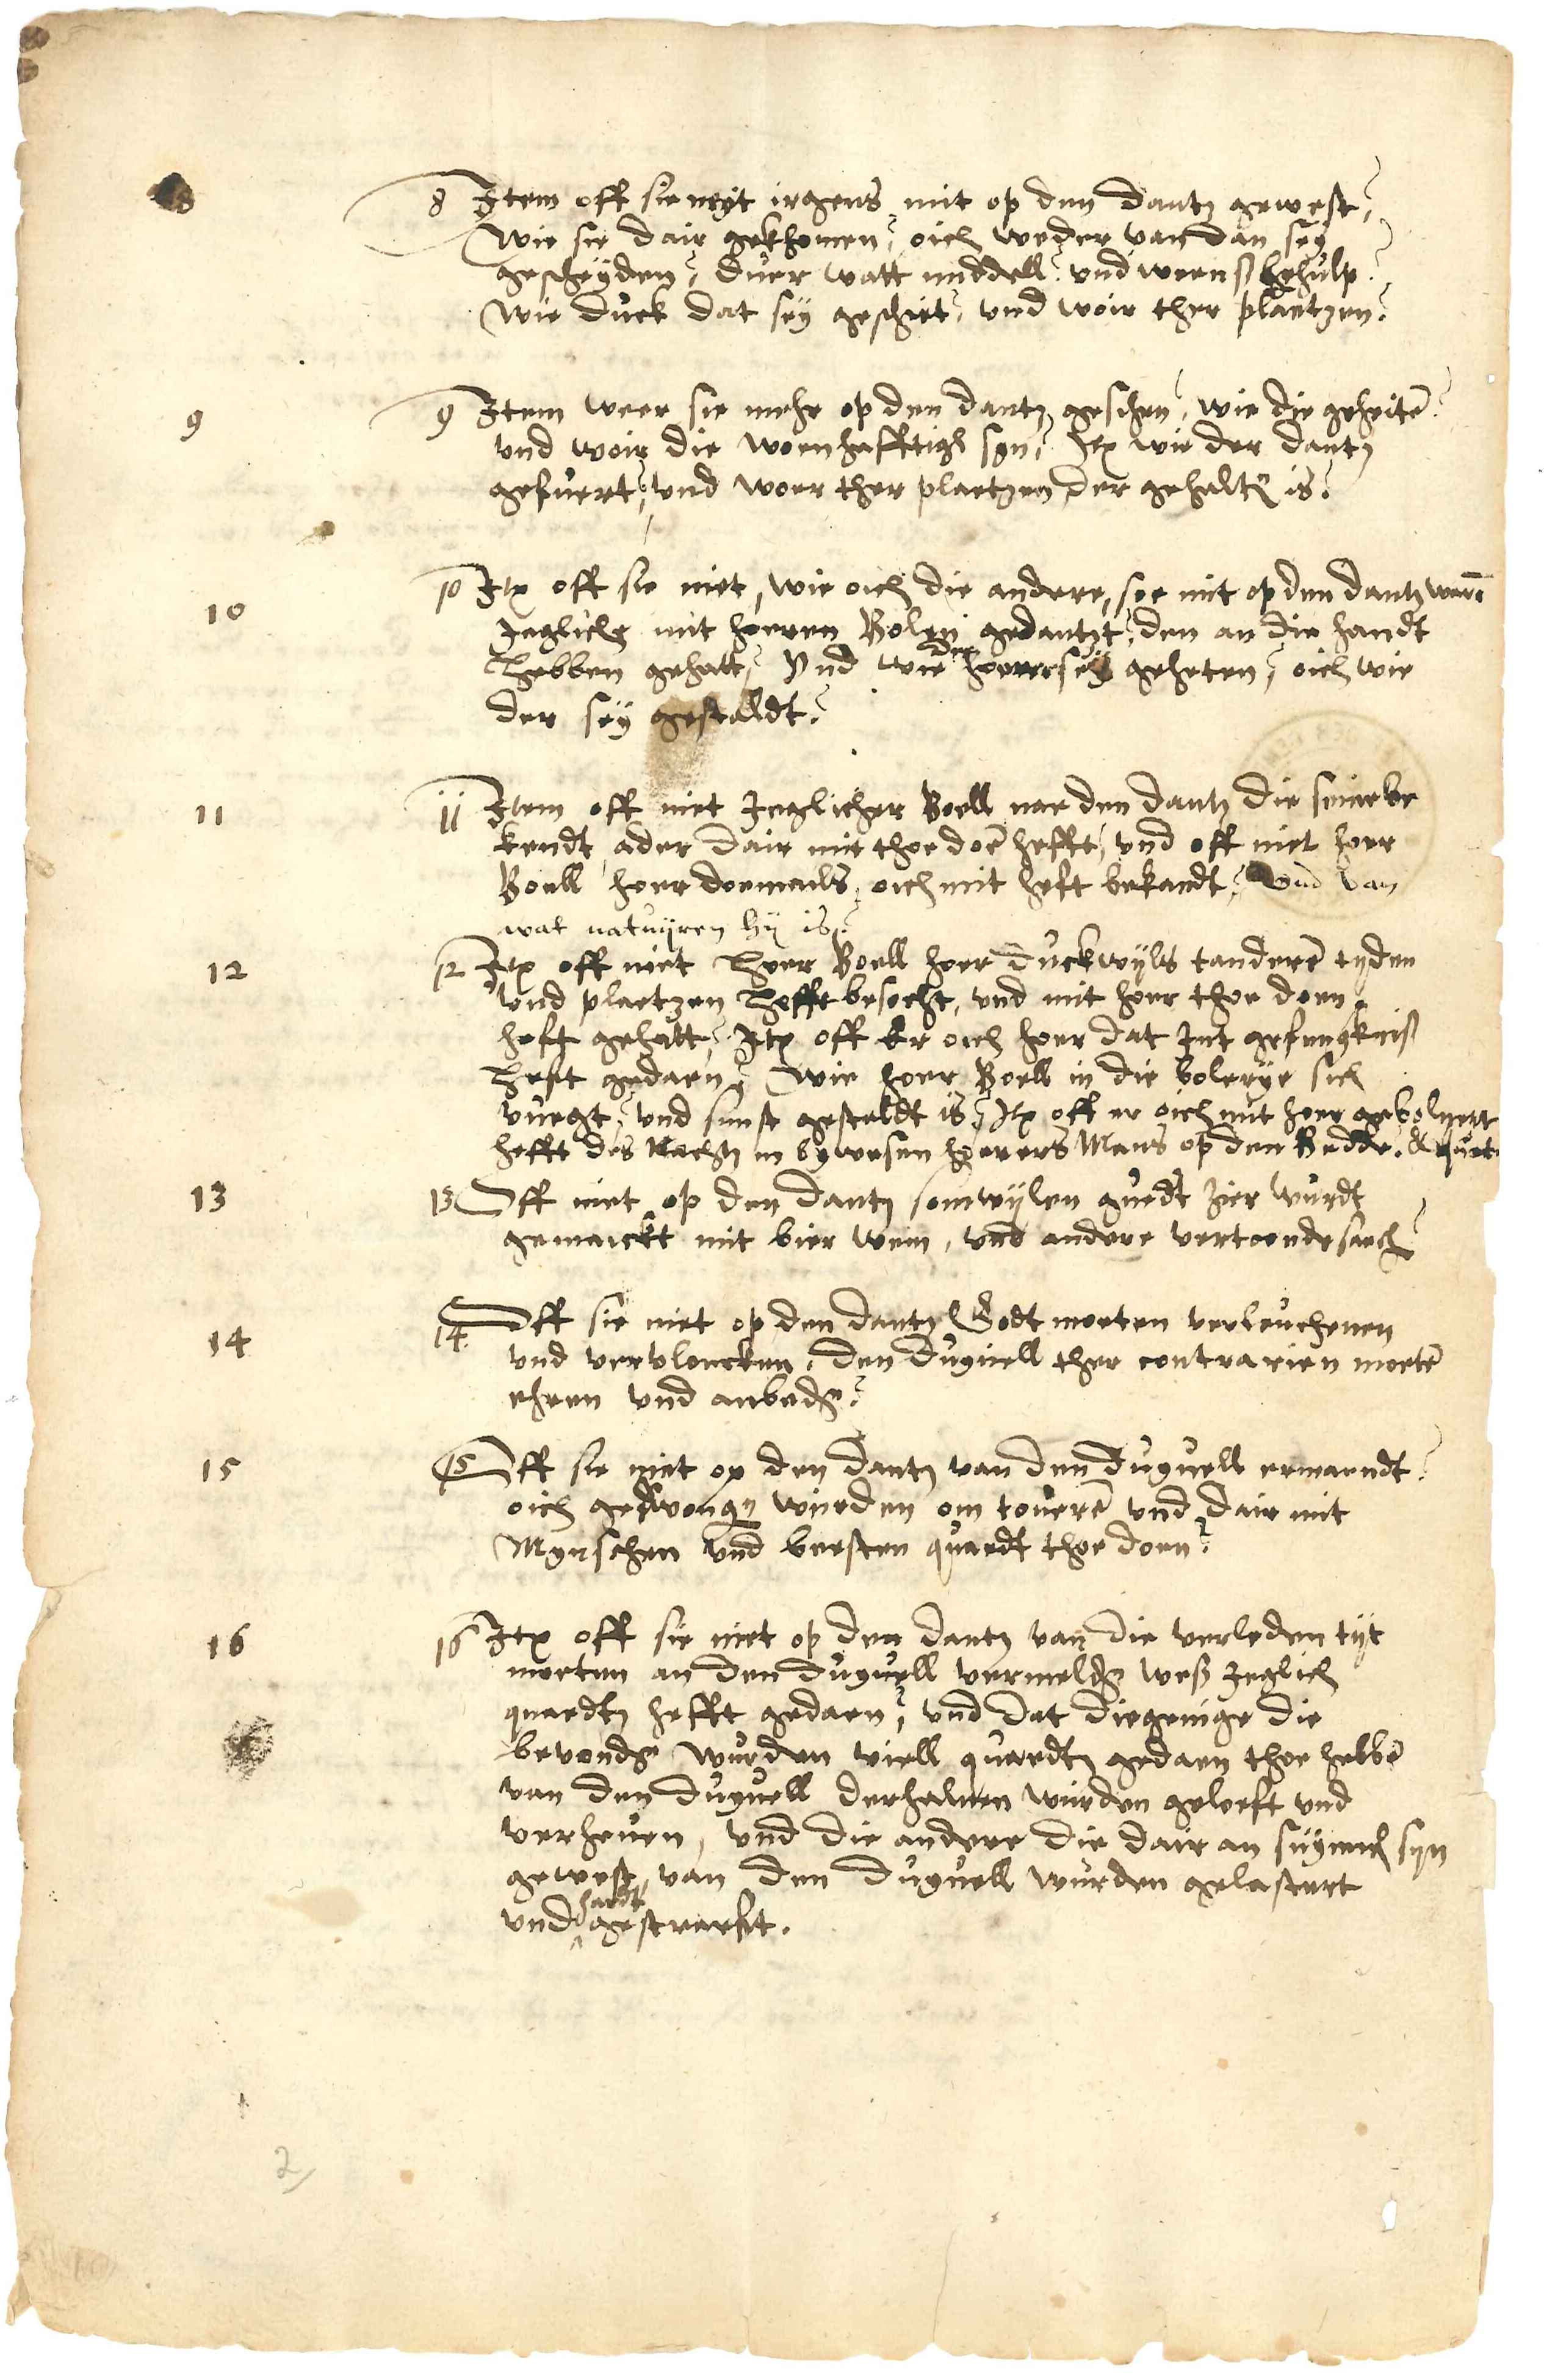 8 Item off sie neyt irgens mit op den dantz gewest,
Wie sie dair gekhomen, oich weder van dan sey
gescheyden, duer watt middell und weens behulp.
Wie duck dat sey geschiet, und woir ther plaetzen?
9
9 Item weer sie mehr op den dantz gesehen, wie die geheite
und woir die woenhafftich syn, Itm wie der dantz
gefuert, und woer ther plaetzen der gehalten is?
10
10 Itm off sie niet, wie oich die andere, soe mit op den dantz were
Jegliche mit hoeren Bolen gedantzt, den an die handt
hebben gehatt, Und wie der hoerer sey geheten, oich wie
der sey gestaldt?
11
11 Item off niet Jeglicher Boell nae den dantz die seine be
kendt ader dair mit thoe doen hefft, und off niet hoer
Boell hoer doemails oich mit heft bekandt, und van
wat natuyren hy is?
12
12 Itm off niet hoer Boell hoer duckwyls tanderen tyden
und plaetzen hefft besocht, und mit hoer thoe doen
heft gehatt, Itm off er oich hoer dat Int gefengkniss
heft gedaen, Wie hoer Boell in die bolerye sich
vuegt, und sunst gestaldt is, Itm off er oich mit hoer geboleert
hefft des Nachtz in bywesen hoerers Mans op den Bedde. &
13
13 Off niet op den dantz somwylen guedt zier wurdt
gemaickt mit bier wein, und andere
14
14 Off sie niet op den dantz Godt moeten verleuchenen
und vervloecken, den duyvell ther contrarien moete
ehren und anbeden?
15
15 Off sie niet op den dantz van den duyvell ermaendt
oich gedwongen wurden om toveren und dair mit
Mynschen und beesten quaedt thoe doen?
16
16 Itm off sie niet op den dantz van die verleden tyt
moeten an den duyvell vermelden wess Jeglich
quaedtz hefft gedaen, und dat diegenige die
bevonden wurden viell quaedtz gedaen thoe hebbe
van den duyvell derhalven wurden geloeft und
verheven, und die andere die dair an suymich syn
gewest, van den duyvell wurden gelastert
und hardt gestraeft.
2